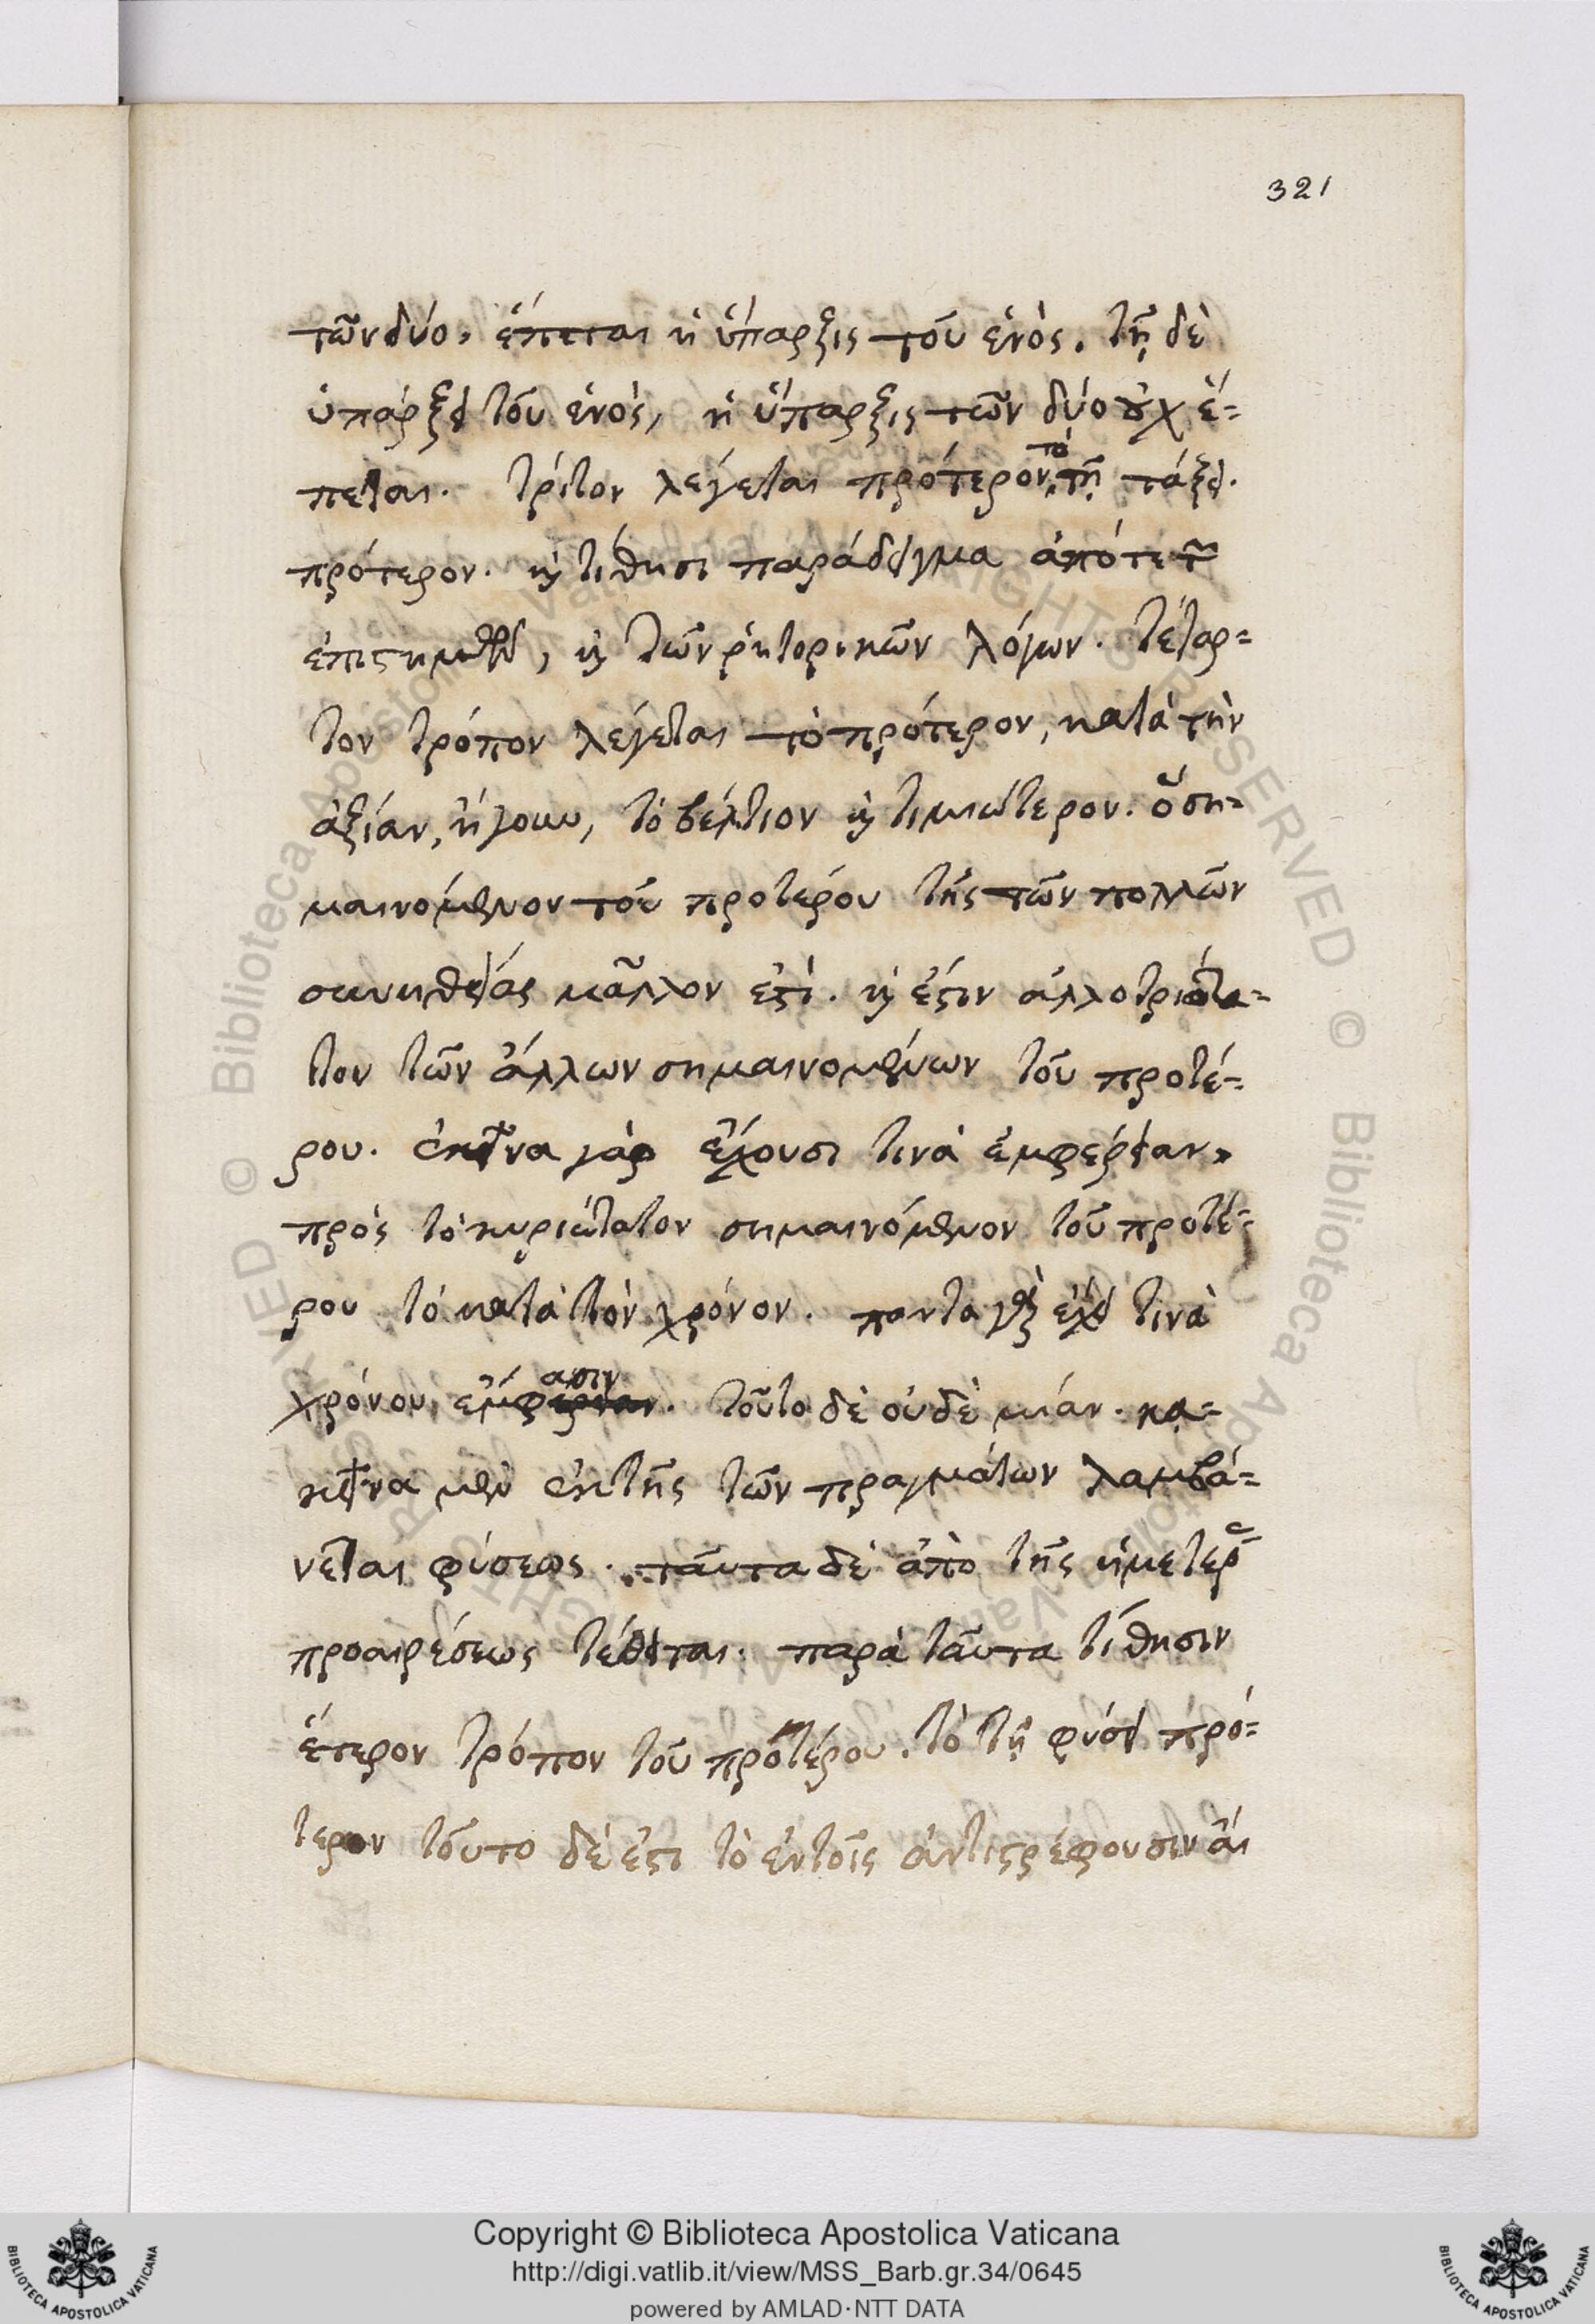 321
τῶν δύο, ἕπεται ἡ ὕπαρξις τοῦ ἑνὸς. τῇ δὲ
ὑπάρξει τοῦ ἑνὸς, ἡ ὕπαρξις τῶν δύο οὐχ ἕ-
πεται. τρίτον λέγεται πρότερον, τὸ τῇ τάξει.
πρότερον. καὶ τίθησι παράδειγμα ἀπό τε τῶν
ἐπιστημῶν, καὶ τῶν ῥητορικῶν λόγων. τέταρ-
τον τρόπον λέγεται τὸ πρότερον, κατὰ τὴν
ἀξίαν, ἤγουν, τὸ βέλτιον καὶ τιμιώτερον. ὃ ση-
μαινόμενον τοῦ προτέρου τῆς τῶν πολλῶν
συνηθείας μᾶλλον ἐστὶ. καὶ ἔστιν ἀλλοτριώτα-
τον τῶν ἄλλων σημαινομένων τοῦ προτέ-
ρου. ἐκεῖνα γὰρ ἔχουσι τινὰ ἐμφέρειαν,
πρὸς τὸ κυριώτατον σημαινόμενον τοῦ προτέ-
ρου τὸ κατὰ τὸν χρόνον. παντα γὰρ ἔχει τινὰ
χρόνου ἔμφασιν. τοῦτο δὲ οὐδὲ μιάν. κα-
κεῖνα μὲν ἐκ τῆς τῶν πραγμάτων λαμβά-
νεται φύσεως. ταῦτα δὲ ἀπὸ τῆς ἡμετέρας
προαιρέσεως τέθειται. παρὰ ταῦτα τίθησιν
ἕτερον τρόπον τοῦ προτέρου. τὸ τῇ φύσει πρό-
τερον τοῦτο δέ ἐστι τὸ ἐν τοῖς ἀντιστρέφουσιν αἴ
Copyright © Biblioteca Apostolica Vaticana
http://digi.vatlib.it/view/MSS_Barb.gr.34/0645
powered by AMLAD·NTT DATA